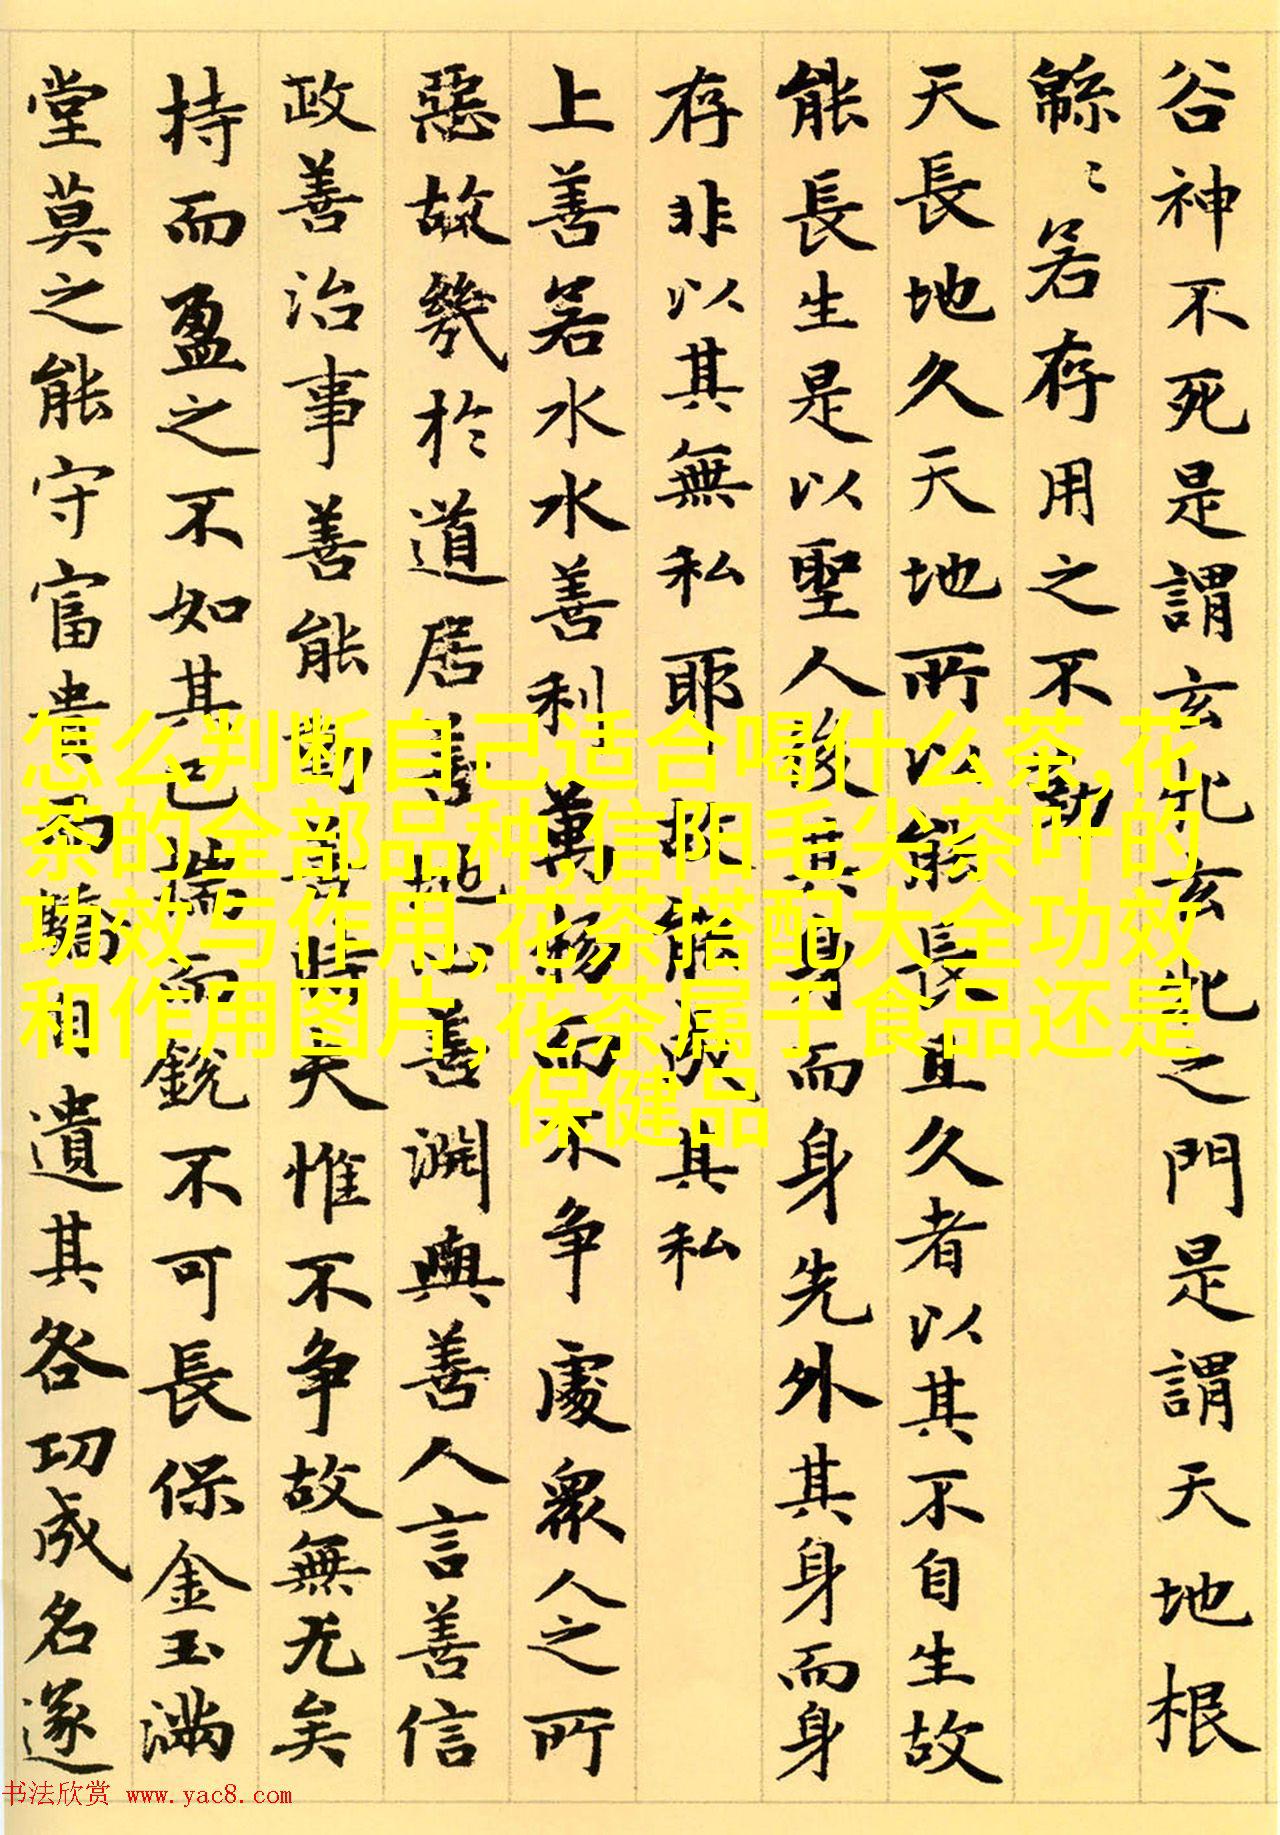 谷神不死是謂玄牝玄牝之門是謂天地根
緜〻若存用之不勤
天長地久天地所以能長且久者以其不自生故
能長生是以聖人後其身而身先外其身而身
存非以其無私耶故能成其私
上善若水水善利萬物而不争處衆人之所
惡故幾於道居善地心善淵與善人言善信
政善治事善能動善時夫惟不争故無尤矣
持而盈之不如其已揣而銳不可長保金玉滿
堂莫之能守富貴而驕自遺其咎功成名遂
怎么判断自己适合喝什么茶,花
茶的全部品种,信阳毛尖茶叶的
功效与作用,花茶搭配大全功效
和作用图片,花茶属于食品还是
保健品
书法欣赏 www.yac8.com